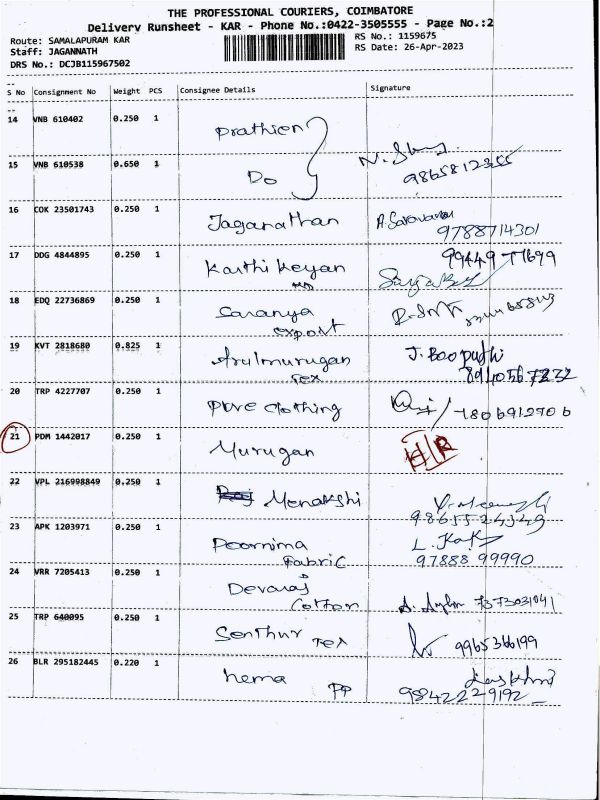 THE PROFESSIONAL COURIERS, COIMBATORE
Delivery Runsheet - KAR - Phone No.:0422-3505555 - Page No.:2
Route: SAMALAPURAM KAR
RS No.: 1159675
Staff: JAGANNATH
RS Date: 26-Apr-2023
DRS No.: DCJB115967502
S No Consignment No Weight PCS Consignee Details Signature
14 VNB 610402 0.250 1 Prathien
15 VNB 610538 0.650 1 Do 9865812355
16 COK 23501743 0.250 1 Jaganathan A. Saravanan
9788714301
17 DDG 4844895 0.250 1 Karthikeyan 99449 77699
18 EDQ 22736869 0.250 1 Saranya
export
19 KVT 2818680 0.825 1 Arulmurugan J. Boopathi
Tex 8940567232
20 TRP 4227707 0.250 1 Pure clothing 7806912706
21 PDM 1442017 0.250 1 Murugan
22 VPL 216998849 0.250 1 Menakshi
98655 24349
23 APK 1203971 0.250 1 Poornima
Fabric 97888 99990
24 VRR 7205413 0.250 1 Devaraj
Cotton 7373031041
25 TRP 640095 0.250 1 Senthur Tex 9965366199
26 BLR 295182445 0.220 1 hema
PP 98422 29192